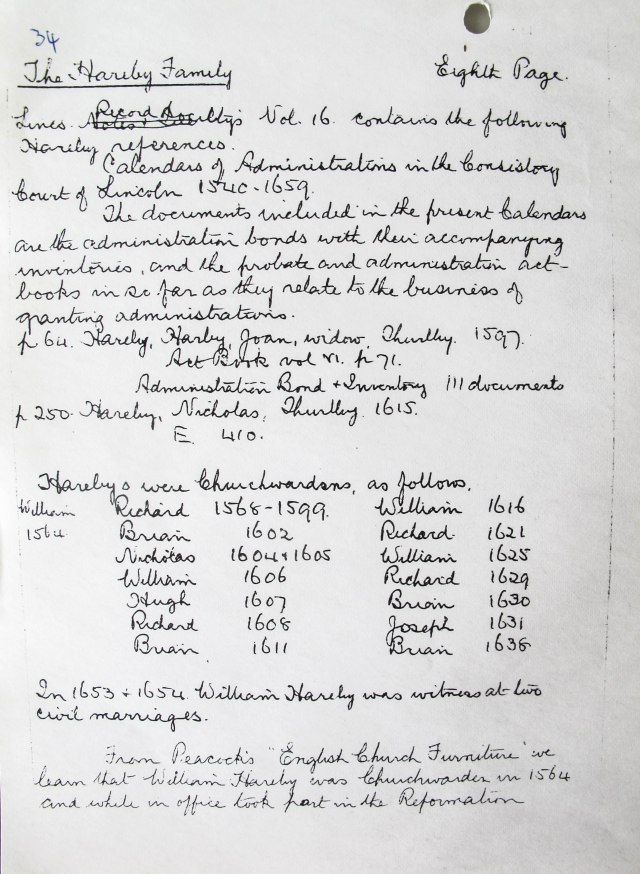 34
The Hareby Family Eighth Page.
Lincs. Record Society's Vol. 16. contains the following
Hareby references.
Calendars of Administrations in the Consistory
Court of Lincoln 1540-1659.
The documents included in the present Calendars
are the administration bonds with their accompanying
inventories, and the probate and administration act-
books in so far as they relate to the business of
granting administrations.
p 64. Hareby, Harby, Joan, widow, Thurlby. 1597.
Act Book vol VI. p 71.
Administration Bond & Inventory 111 documents
p 250. Hareby, Nicholas, Thurlby. 1615.
E. 410.
Harebys were Churchwardens, as follows.
William Richard 1568-1599. William 1616
1564. Brian 1602 Richard 1621
Nicholas 1604 & 1605 William 1625
William 1606 Richard 1629
Hugh 1607 Brian 1630
Richard 1608 Joseph 1631
Brian 1611 Brian 1638
In 1653 & 1654. William Hareby was witness at two
civil marriages.
From Peacock's "English Church Furniture" we
learn that William Hareby was Churchwarden in 1564
and while in office took part in the Reformation